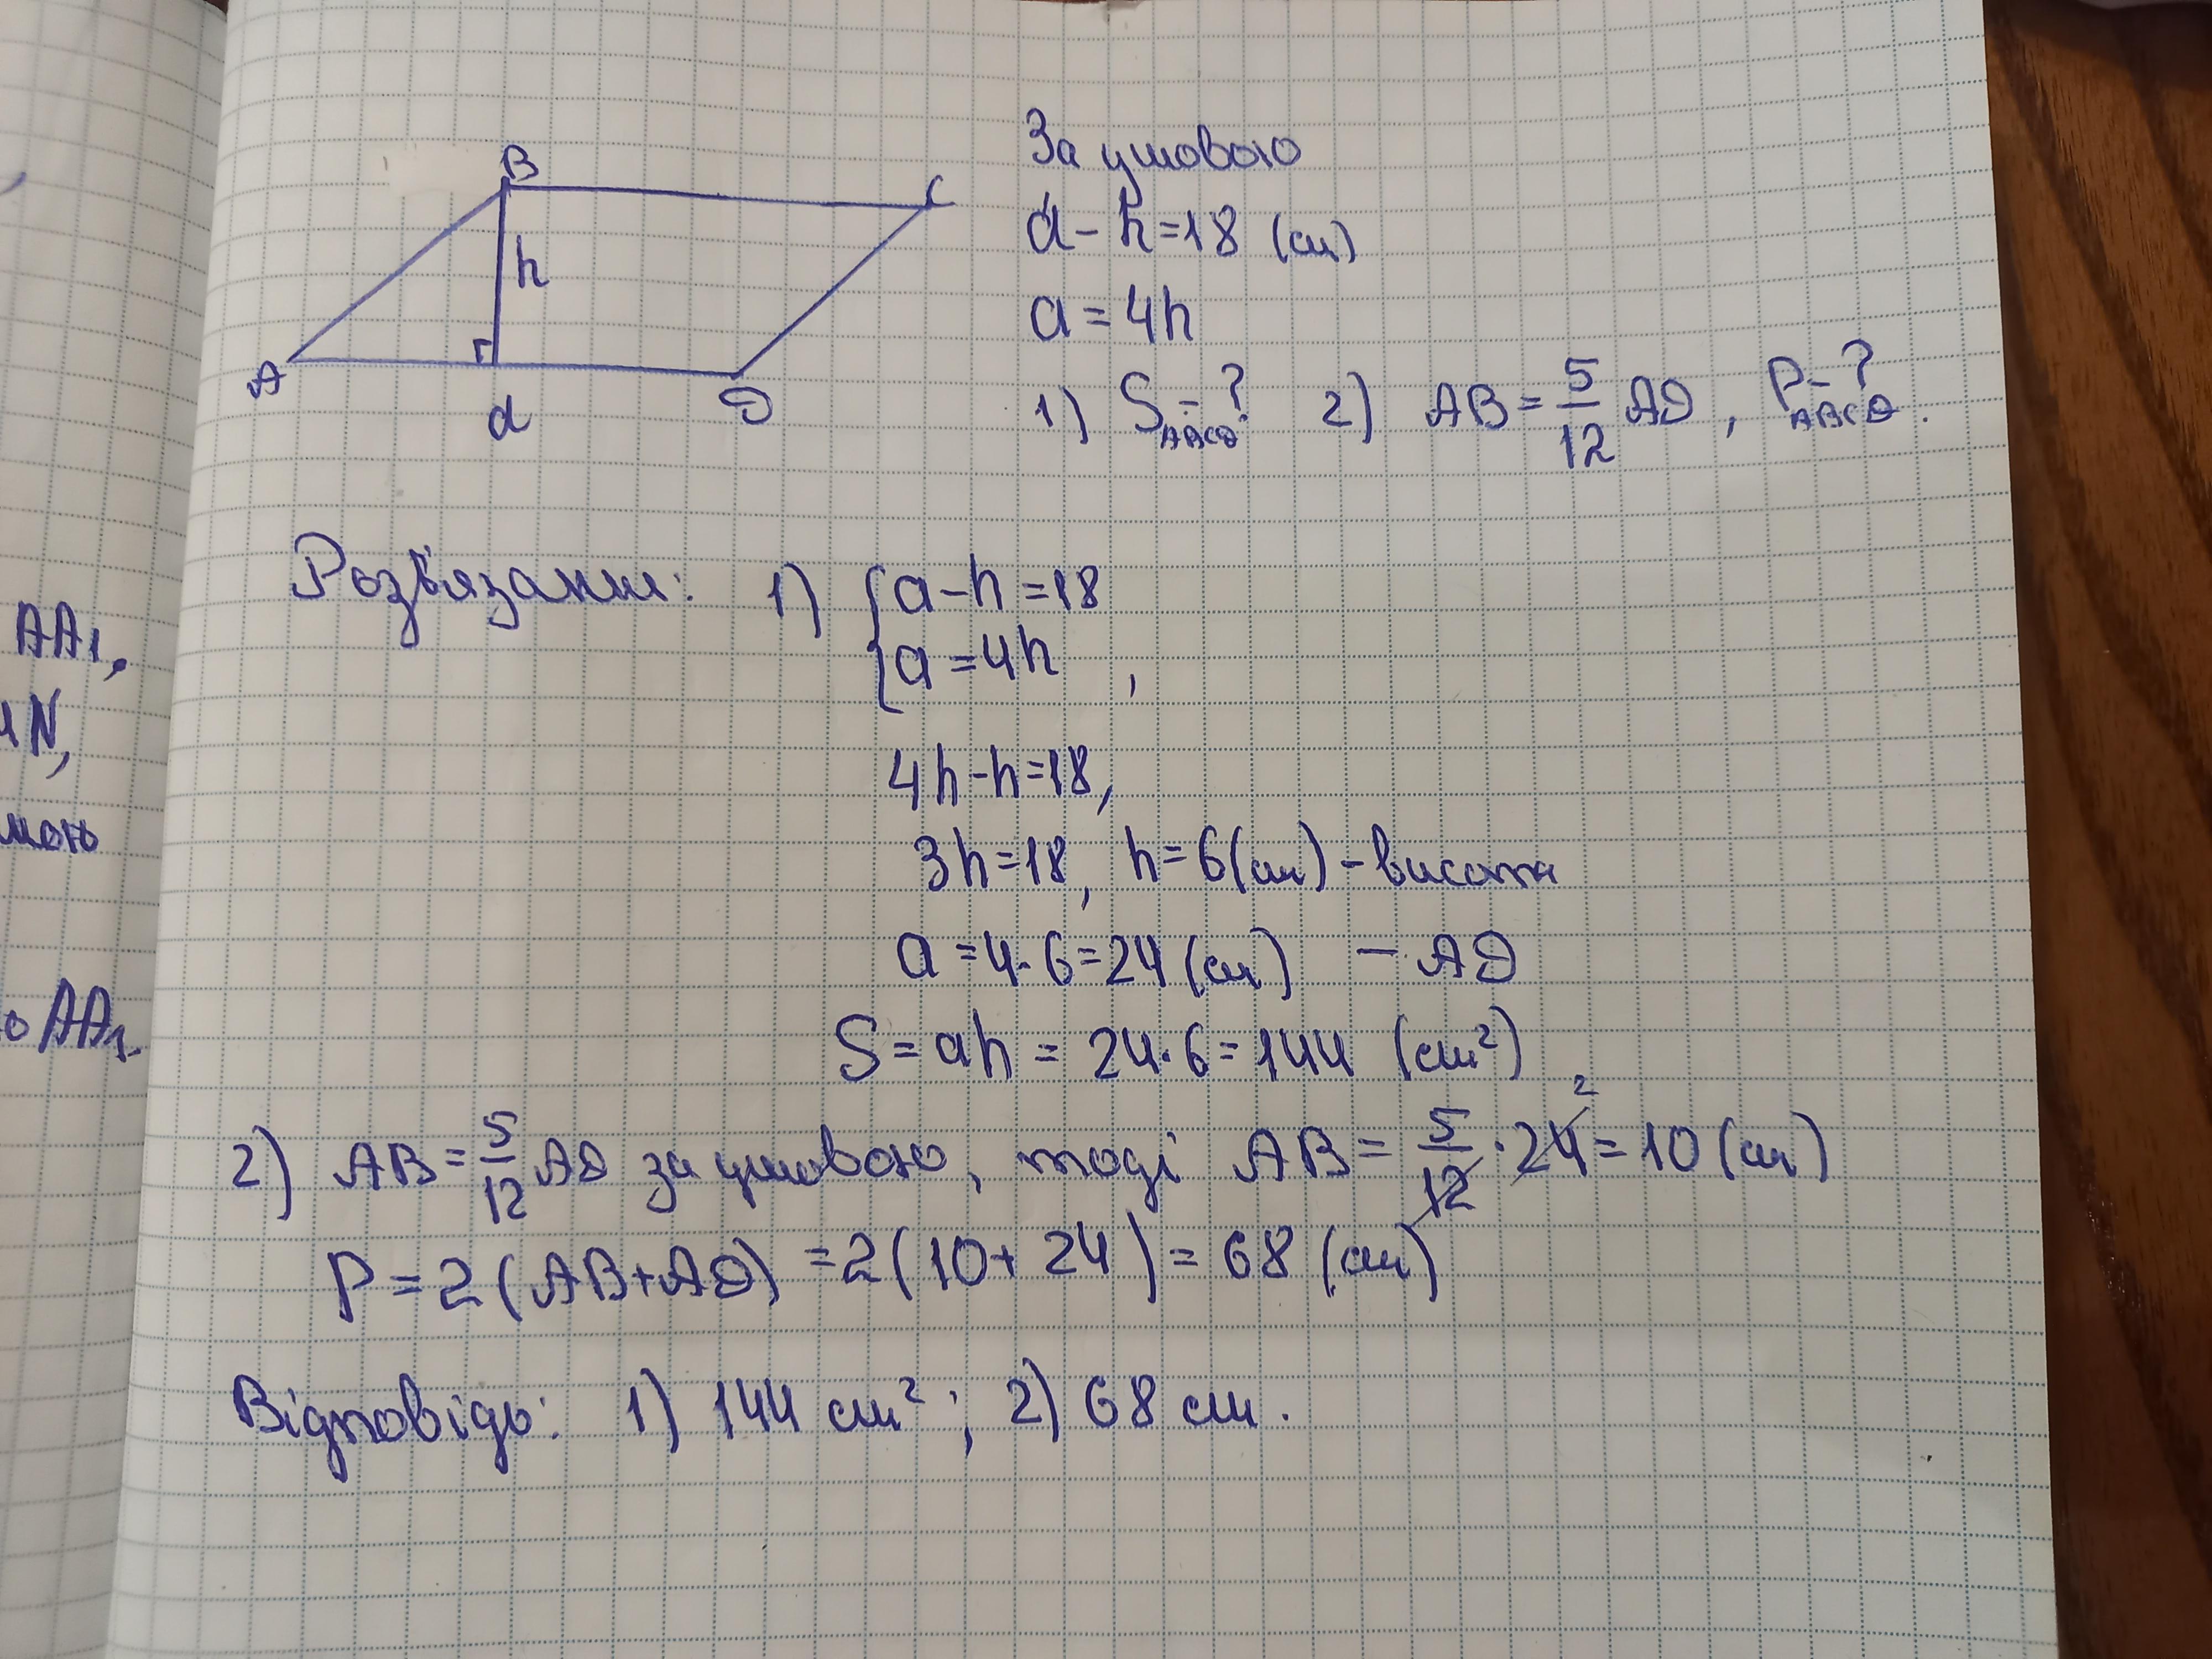 AA1,
N,
мою
AA1.
B
C
h
A
a
D
За умовою
a - h = 18 (см)
a = 4h
1) S ABCD - ? 2) AB = 5/12 AD, P ABCD - ?.
Розв'язання: 1) { a - h = 18
a = 4h ,
4h - h = 18,
3h = 18, h = 6 (см) - висота
a = 4 · 6 = 24 (см) - AD
S = ah = 24 · 6 = 144 (см²)
2) AB = 5/12 AD за умовою, тоді AB = 5/12 · 24 2 = 10 (см)
P = 2 (AB + AD) = 2 (10 + 24) = 68 (см)
Відповідь: 1) 144 см² ; 2) 68 см.